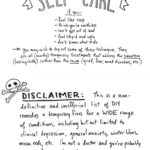 SELF-CARE
if you:
• feel like crap
• think you're worthless
• can't get out of bed
• feel stupid and ugly
• don't know what to do
you may wish to try out some of these techniques. They
are all (mostly) temporary treatments that address the symptoms
rather than the cause
DISCLAIMER: This is a non-
definitive and unofficial list of DIY
remedies & temporary fixes for a WIDE range
of conditions, including but not limited to
clinical depression, general anxiety, winter blues,
mean reds, etc. I'm not a doctor and you're probably